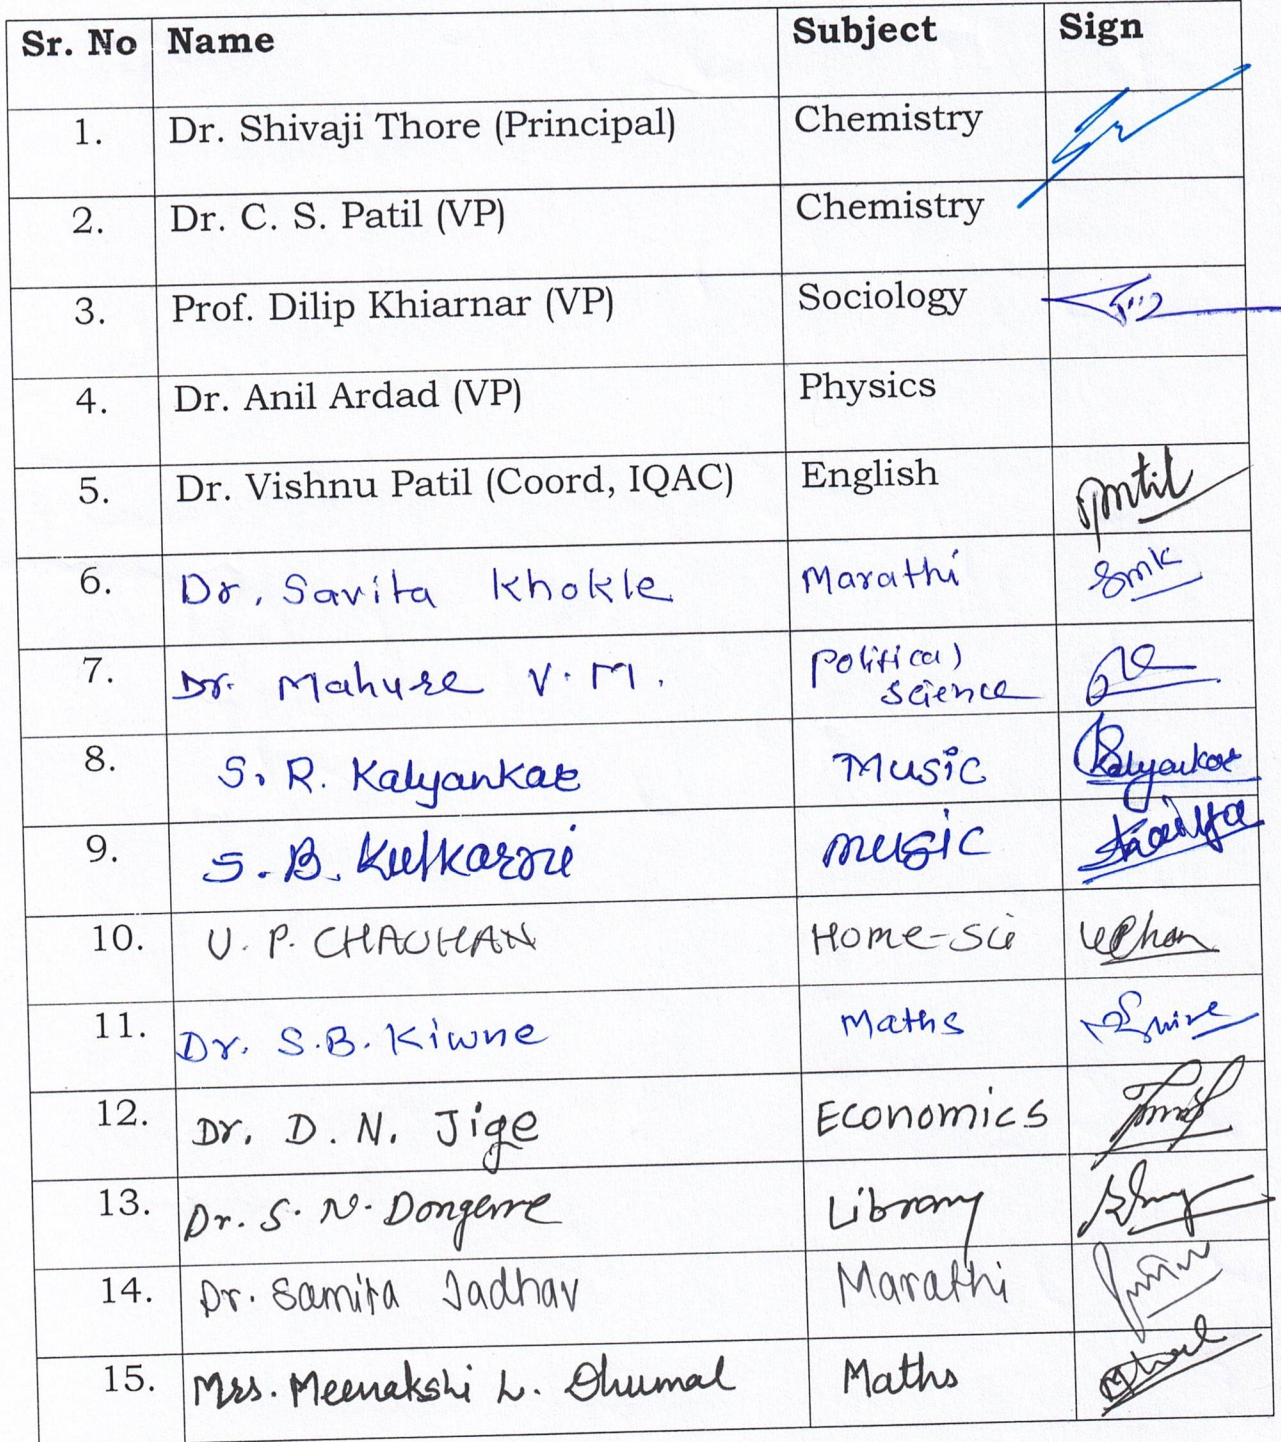 Sr. No Name Subject Sign
1. Dr. Shivaji Thore (Principal) Chemistry
2. Dr. C. S. Patil (VP) Chemistry
3. Prof. Dilip Khiarnar (VP) Sociology
4. Dr. Anil Ardad (VP) Physics
5. Dr. Vishnu Patil (Coord, IQAC) English
6. Dr. Savita Khokle Marathi Smk
7. Dr. Mahure V.M. Political
Science
8. S. R. Kalyankar Music Kalyankar
9. S. B. Kulkarni music
10. U. P. CHAUHAN Home-Sci
11. Dr. S.B. Kiwne Maths
12. Dr. D. N. Jige Economics
13. Dr. S. N. Dongerre Library
14. Dr. Samita Jadhav Marathi
15. Mrs. Meenakshi L. Dhumal Maths